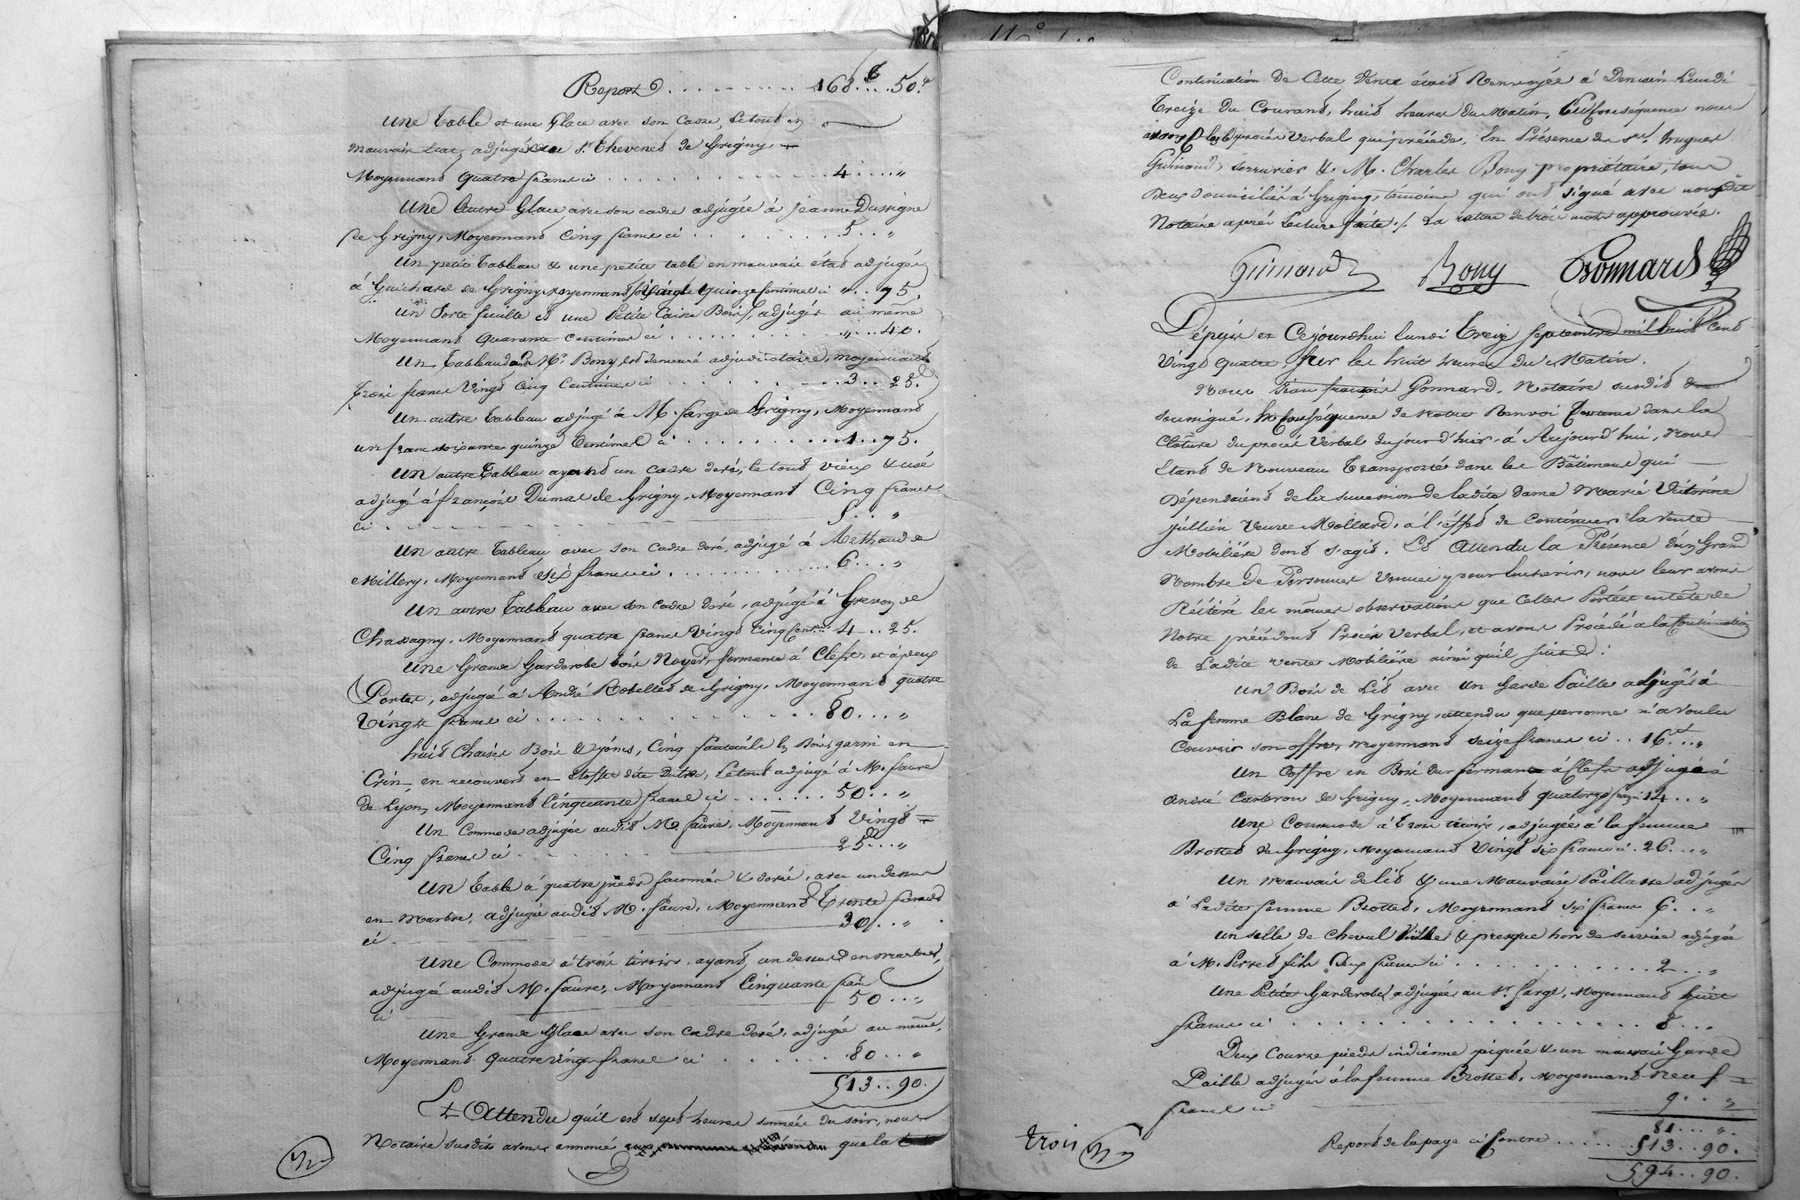 Report . . . . . . . . 168 f. . 50 c
une table et une Glace avec son Cadre, le tout en
mauvais état, adjugé au Sr. Thevenet de Grigny,
Moyennant quatre francs ci . . . . . . . . 4 . . . "
une autre Glace avec son cadre adjugée à Jeanne Dussigne
de Grigny, Moyennant Cinq francs ci . . . . . . . 5 . . "
un petit tableau & une petite table en mauvais état adjugés
à Guichard de Grigny moyennant soixante quinze Centimes ci " . . 75
un Porte feuille et une Petite Caisse Bois, adjugés au même
Moyennant Quarante centimes ci . . . . . . " . . 40.
un tableau dont Mr. Bony est demeuré adjudicataire, moyennant
trois francs Vingt Cinq Centimes ci . . . . . . 3 . . 25.
un autre tableau adjugé à M. Farge de Grigny, Moyennant
un franc soixante quinze Centimes ci . . . . . . . . 1 . . 75.
un autre tableau ayant un cadre doré, le tout vieux & usé
adjugé à françois Dumas de Grigny, Moyennant Cinq francs
ci . . . . . . . 5 . . "
un autre tableau avec son cadre doré, adjugé à Methaud de
Millery, Moyennant six francs ci . . . . . . . . . 6 . . . "
un autre tableau avec son cadre doré, adjugé à de
Chassagny, Moyennant quatre francs vingt Cinq Cent. 4 . . 25.
une Grande Garderobe bois Noyer, fermante à Clefs, et à deux
Portes, adjugé à André Robellet de Grigny, Moyennant quatre
Vingt francs ci . . . . . . . . . . . 80 . . . "
huit Chaises Bois & joncs, Cinq fauteuils Bois garni en
Crin, en recouvert en étoffe dite , le tout adjugé à M. faure
de Lyon, Moyennant Cinquante francs ci . . . . . . 50 . . "
un Commode adjugée audit M. faure, Moyennant Vingt
Cinq francs ci . . . . . . 25 . . "
un table à quatre pieds façonnés & dorés, avec un dessus
en Marbre, adjugée audit M. faure, Moyennant Trente francs
ci . . 30 . . "
une Commode à trois tiroirs, ayant un dessus en marbre,
adjugé audit M. faure, Moyennant Cinquante fran
ci 50 . . "
une Grande Glace avec son cadre doré, adjugée au même,
Moyennant Quatre vingt francs ci . . . . . . 80 . . "
513 . . 90.
Et Attendu qu'il est sept heures sonnées du soir, nous
Notaire susdit avons annoncé que la
Continuation de Cette Vente était Renvoyée à Demain Lundi
treize du Courant, huit heures du Matin, En Conséquence nous
avons clos le procès Verbal qui précède, En Présence de Sr. hugues
Guinand, serrurier & M. Charles Bony propriétaire, tous
deux domiciliés à Grigny, témoins qui ont signé avec nousdit
Notaire après lecture faite ./. La rature de trois mots approuvée.
Guinand Bony Gonnard
Dépuis et Cejourdhui lundi treize septembre mil huit cent
vingt quatre, sur les huit heures du Matin.
Nous Jean françois Gonnard, Notaire susdit
soussigné, En Conséquence de Notre Renvoi Contenu dans la
Cloture du procès Verbal du jour d'hier, à Aujourd'hui, Nous
étant de Nouveau transporté dans les Bâtiments qui
Dépendaient de la succession de ladite dame Marie Victorine
Jullien Veuve Mollard, à l'effet de Continuer la Vente
Mobiliére dont s'agit. Et Attendu la Présence d'un Grand
Nombre de Personnes Venues y pour Encherir, nous leur avons
Réitéré les mêmes observations que Celles Portées en tête de
Notre précédent Procès Verbal, et avons Procédé à la Continuation
de Ladite Vente Mobiliére ainsi qu'il suit :
un Bois de Lit avec un Garde Paille adjugés à
La femme Blanc de Grigny, attendu que personne n'a voulu
Couvrir son offre, moyennant seize francs ci . . 16 . . . "
un Coffre en Bois dur fermant à Clefs adjugé à
André de Grigny, Moyennant quatorze francs 14 . . "
une Commode à trois tiroirs, adjugée à la femme
Brottet de Grigny, Moyennant Vingt six francs ci . 26 . . . "
un mauvais de lit & une Mauvaise Paillasse adjugés
à Ladite femme Brottet, Moyennant six francs 6 . . "
un selle de Cheval Vielle & presque hors de service adjugée
à M. Perret fils Deux francs ci . . . . . . . . . 2 . . "
une Petite Garderobe, adjugée au Sr. farge, Moyennant huit
francs ci . . . . . . . . . . . . . 8 . . "
Deux Courre pieds indienne piquée & un mauvais Garde
Paille adjugés à la femme Brottet, Moyennant neuf
francs ci 9 . . "
81 . . . ".
trois Report de la page ci Contre . . . . . . 513 . . 90.
594 . . 90